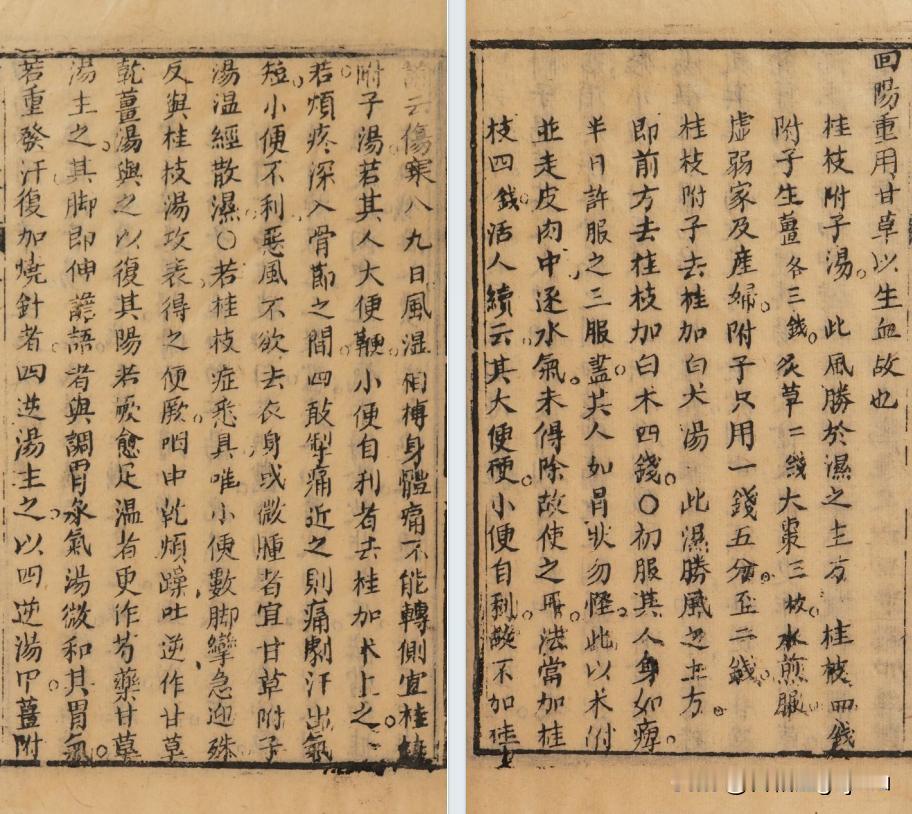 論云傷寒八九日風湿相摶身體痛不能轉側宜桂枝
附子湯若其人大便鞕小便自利者去桂加术主之
若煩疼深入骨節之間四肢掣痛近之則痛劇汗出氣
短小便不利惡風不欲去衣身或微腫者宜甘草附子
湯温經散濕〇若桂枝症悉具唯小便數脚攣急迎殊
反與桂枝湯攻表得之便厥咽中乾煩躁吐逆作甘草
乾薑湯與之以復其陽若厥愈足温者更作芍藥甘草
湯主之其脚即伸譫語者與調胃承氣湯微和其胃氣
若重發汗復加燒針者四逆湯主之以四逆湯中薑附
回陽重用甘草以生血故也
桂枝附子湯 此風勝於濕之主方 桂枝四錢
附子生薑各三錢炙草二錢大棗三枚水煎服
虛弱家及産婦附子只用一錢五分至二錢
桂枝附子去桂加白术湯 此濕勝風之主方
即前方去桂枝加白术四錢〇初服其人身如痺
半日許服之三服盡其人如冒狀勿怪此以术附
並走皮肉中逐水氣未得除故使之耳法當加桂
枝四錢活人續云其大便硬小便自利故不加桂也